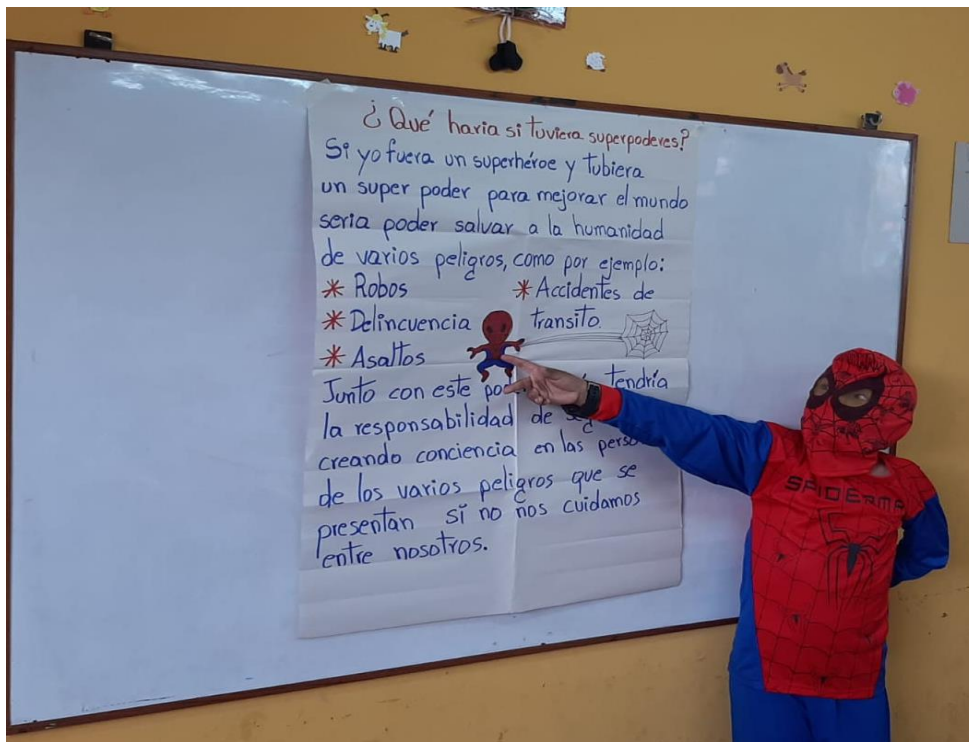 ¿Qué haria si tuviera superpoderes?
Si yo fuera un superhéroe y tubiera
un super poder para mejorar el mundo
seria poder salvar a la humanidad
de varios peligros, como por ejemplo:
* Robos * Accidentes de
* Delincuencia transito
* Asaltos
Junto con este tendría
la responsabilidad de
creando conciencia en las
de los varios peligros que se
presentan si no nos cuidamos
entre nosotros.
SPIDERMA